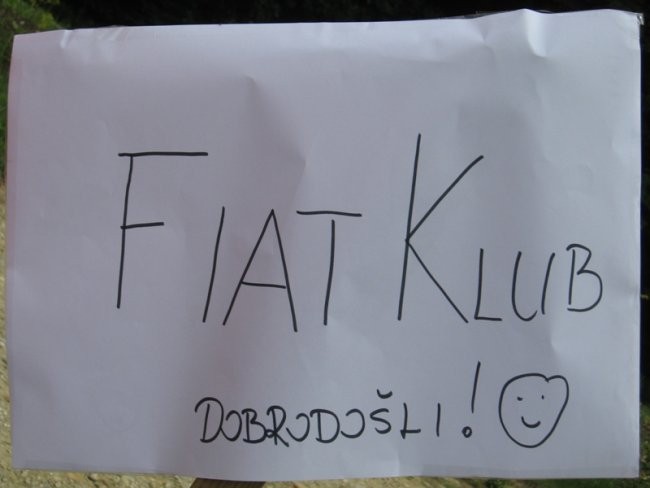 FIAT KLUB
DOBRODOŠLI!